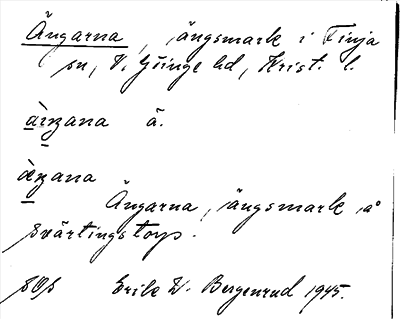 Ängarna, ängsmark i Finja
sn, V. Göinge hd, Krist. l.
ä.
Ängarna, ängsmark å
Svärtingstorp.
Erik W. Bergenrud 1945.